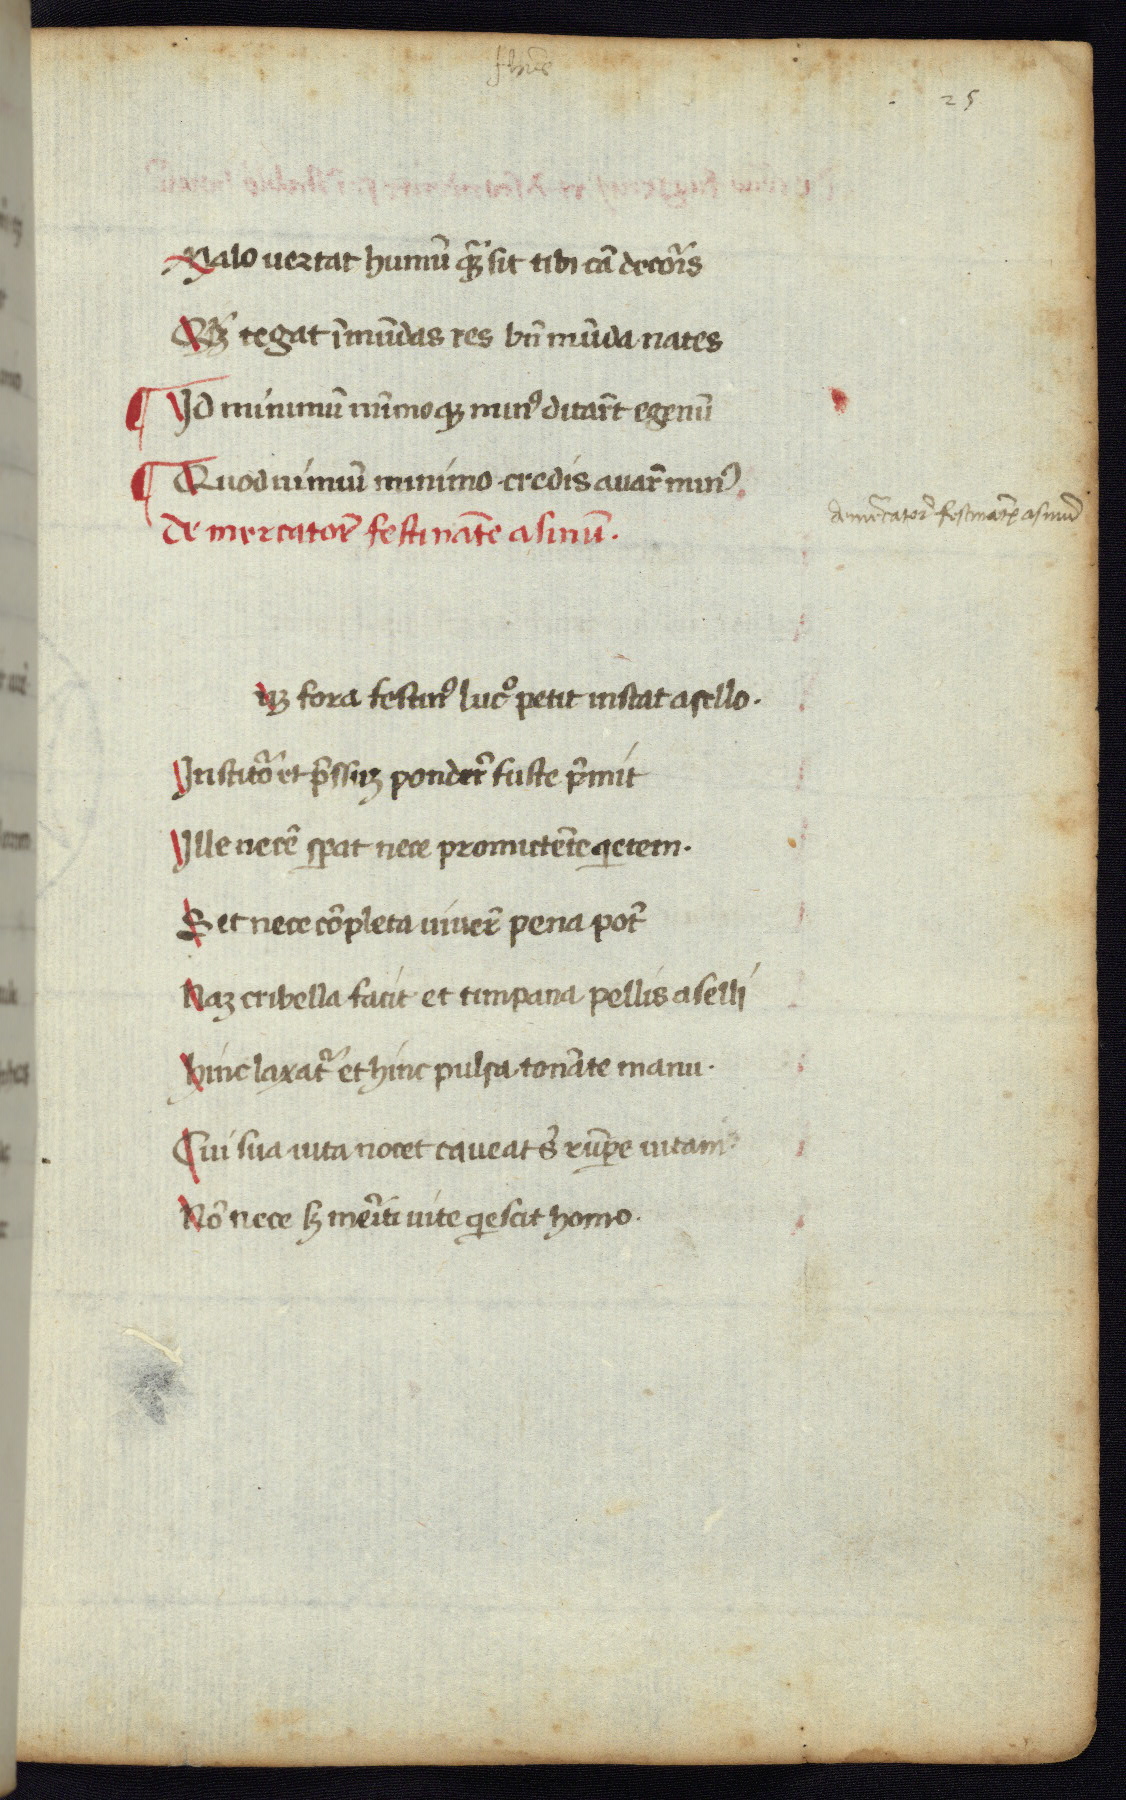 25
Malo vertat humū qȝ sit tibi cā decoris
Qȝ tegat īmūdas res bn̄ mūda nates
Id minimū nimio qȝ minꝰ ditar̄t egenū
Quod nimiū minimo credis avar̄ minꝰ
de mercator̄ festināte asinū.
de mercator̄ festinātē asinū
uȝ fora festinꝰ lucͦ petit instat asello.
Institor et p̄ssuȝ ponder̄ fuste p̄mit
Ille necē sp̄at nece promictēte qietem.
Set nece cōpleta viver̄ pena pot̄
Naȝ cribella facit et timpana pellis aselli
hinc laxat᷑ et hinc pulsa tonāte manu.
Cui sua vita nocet caveat s̄ rūpe vitam
Nō nece sȝ mēriti vite qiescit homo.